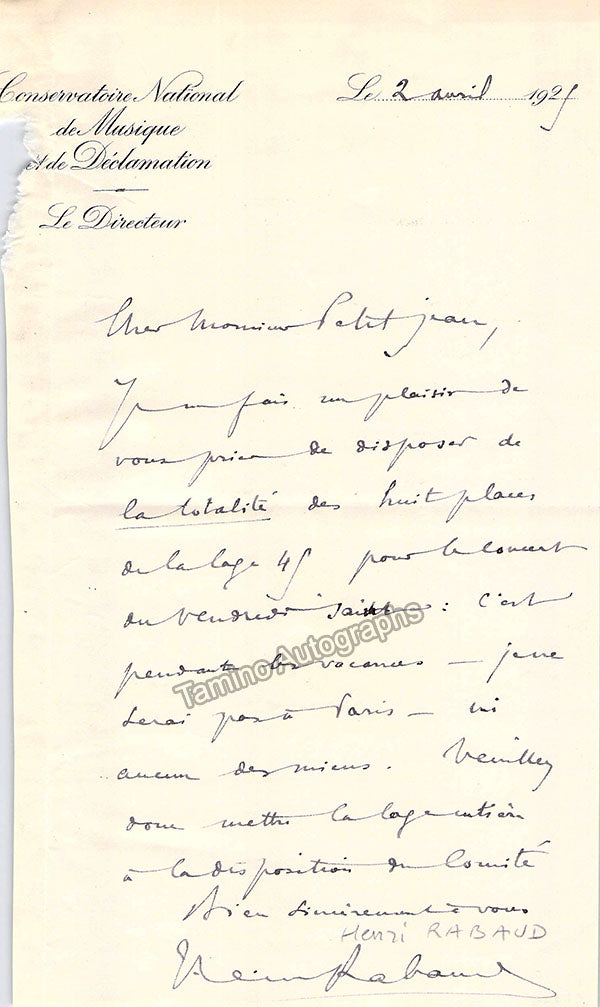 Conservatoire National
de Musique
et de Déclamation
Le Directeur
Le 2 avril 1925
Cher Monsieur Petitjean,
Je me fais un plaisir de
vous prier de disposer de
la totalité des huit places
de la loge 45 pour le concert
du vendredi saint : c'est
pendant les vacances — je ne
serai pas à Paris — ni
aucun des miens. Veuillez
donc mettre la loge entière
à la disposition du Comité
Bien sincèrement à vous
Henri RABAUD
Henri Rabaud
Tamino Autographs